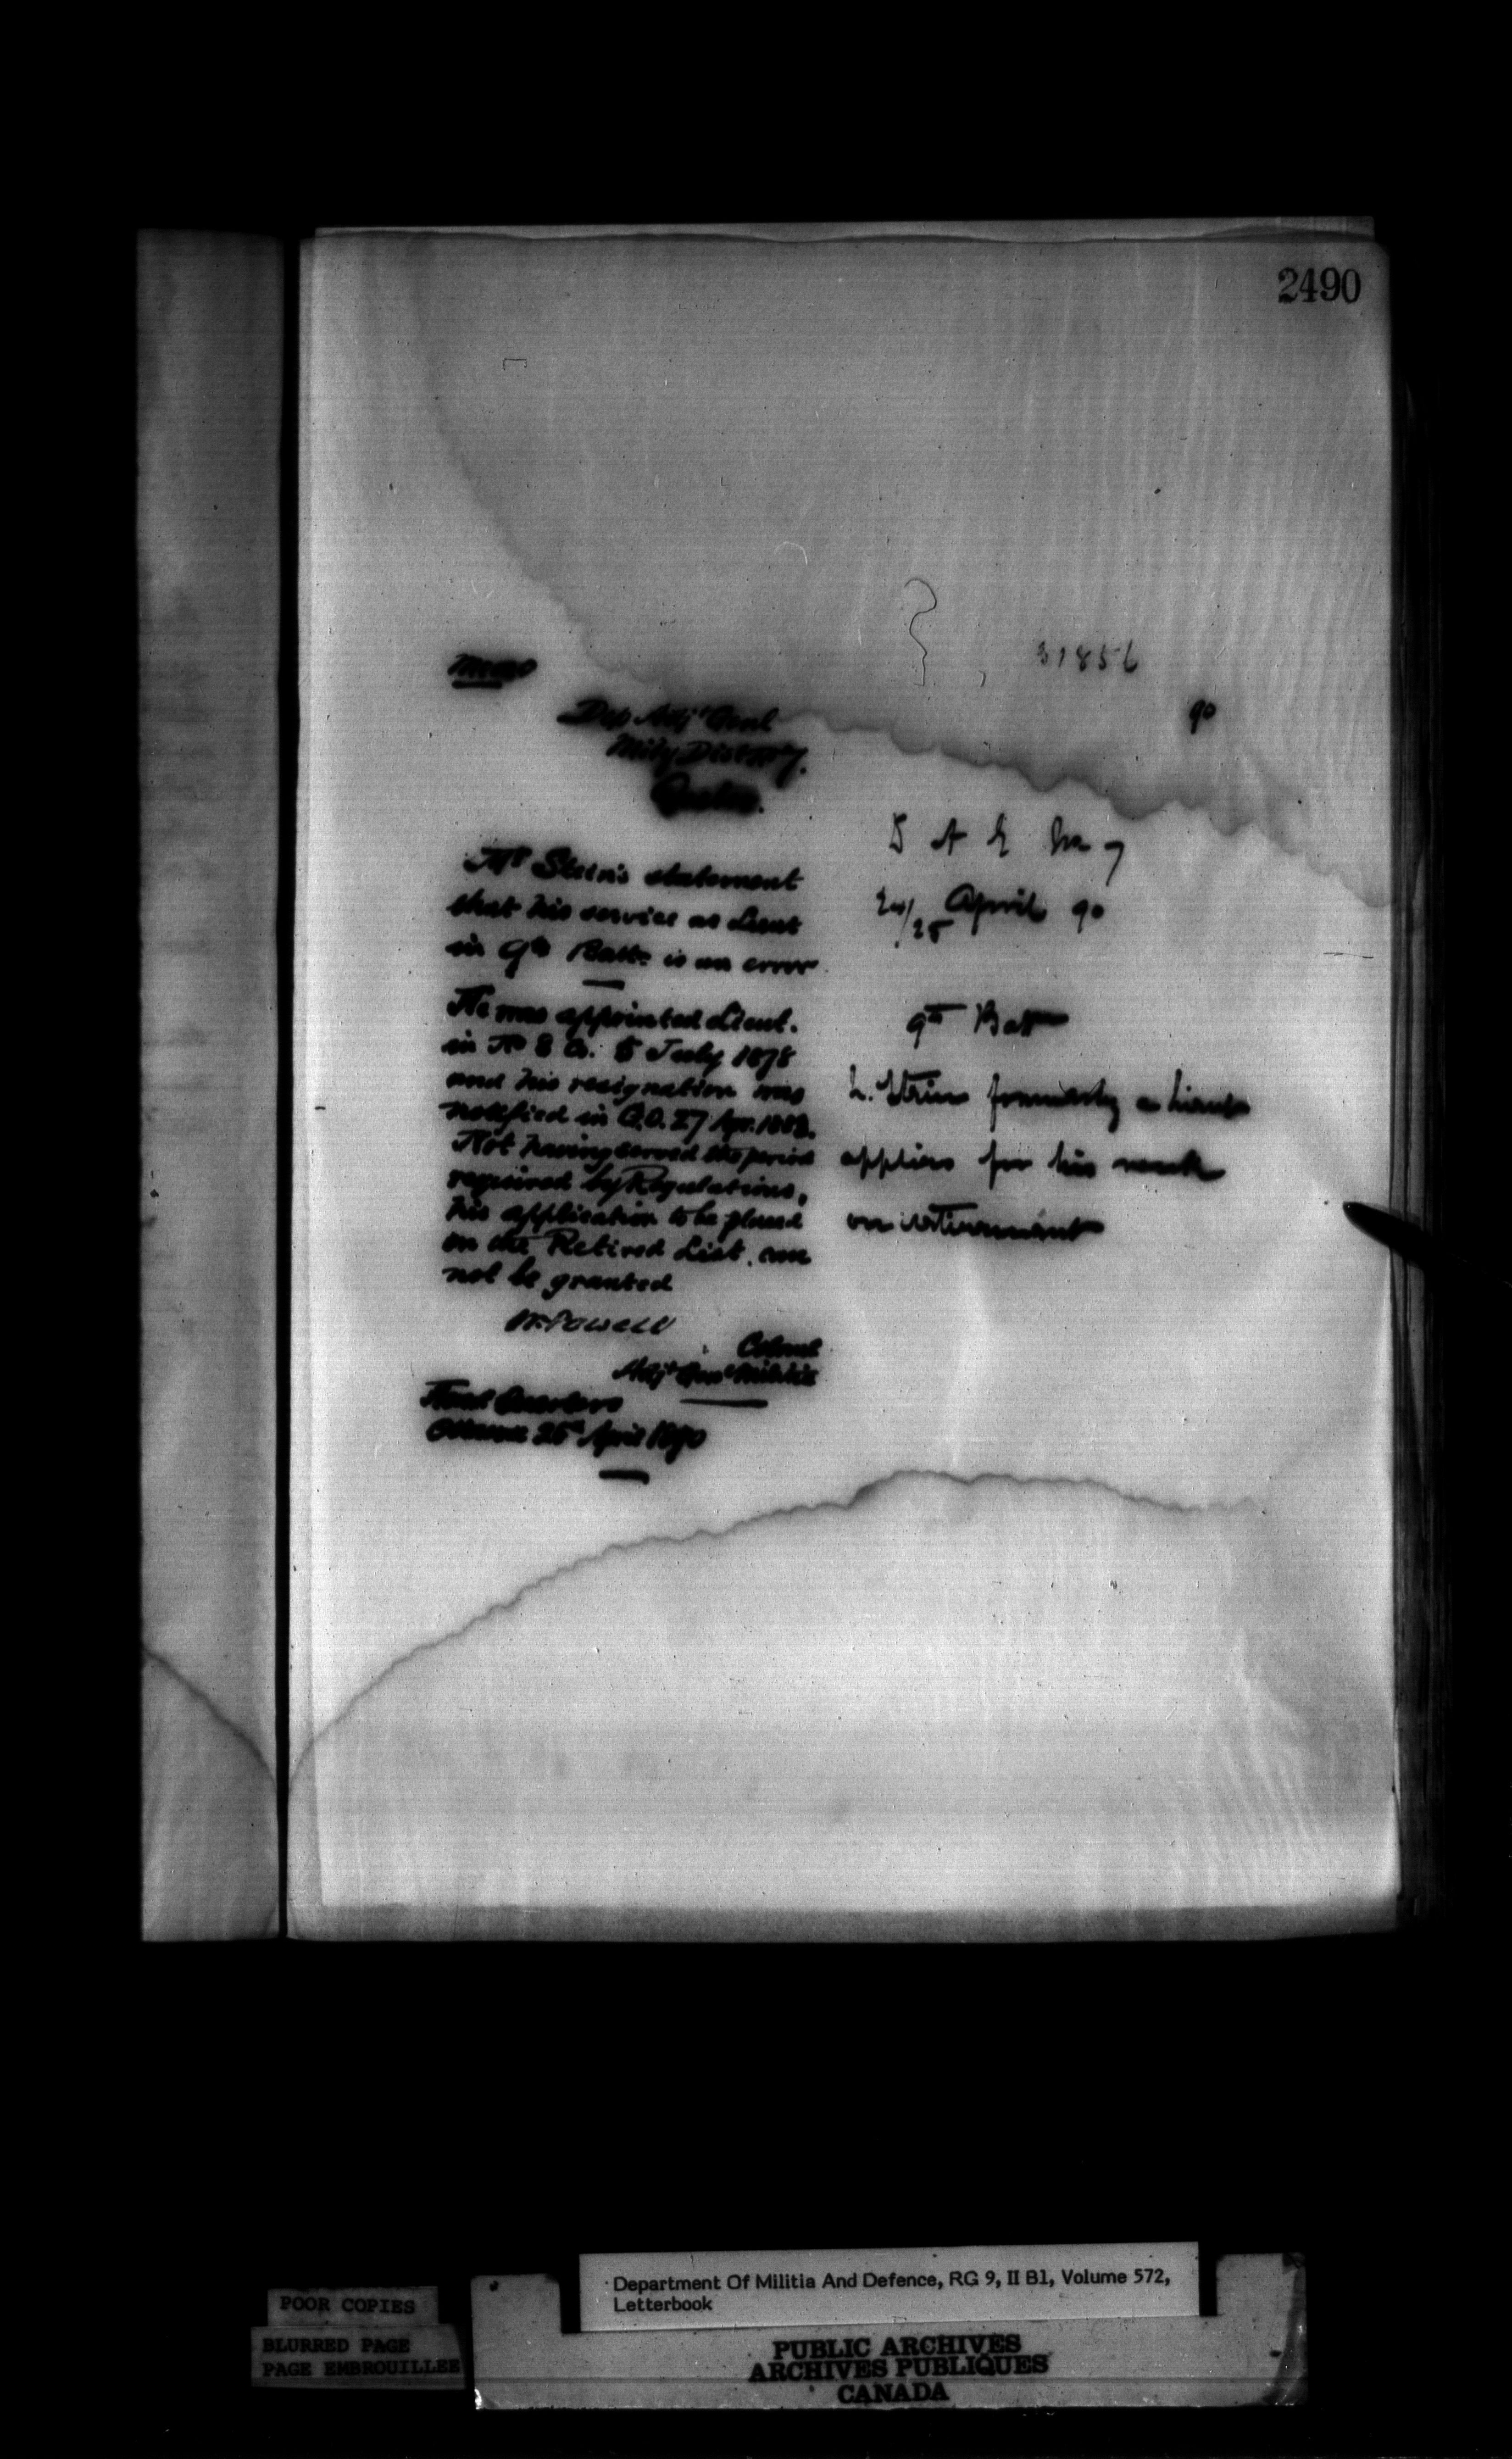 2490
31856
90
Memo
Dep Adjt Genl
Mily Dist No 7.
Quebec.
Mr Stein's statement
that his service as Lieut
in 9th Batt. is an error
He was appointed Lieut.
in No 8 Co. 5 July 1878
and his resignation was
notified in G.O. 27 Apr. 1883.
Not having served the period
required by Regulations,
his application to be placed
on the Retired List, can
not be granted
W. Powell
Colonel
Adjt Genl Militia
Head Quarters
Ottawa 25th April 1890
D A G No 7
24/25 April 90
9th Batt
L. Stein formerly a Lieut
applies for his rank
on retirement
Department Of Militia And Defence, RG 9, II B1, Volume 572,
Letterbook
POOR COPIES
BLURRED PAGE
PAGE EMBROUILLEE
PUBLIC ARCHIVES
ARCHIVES PUBLIQUES
CANADA